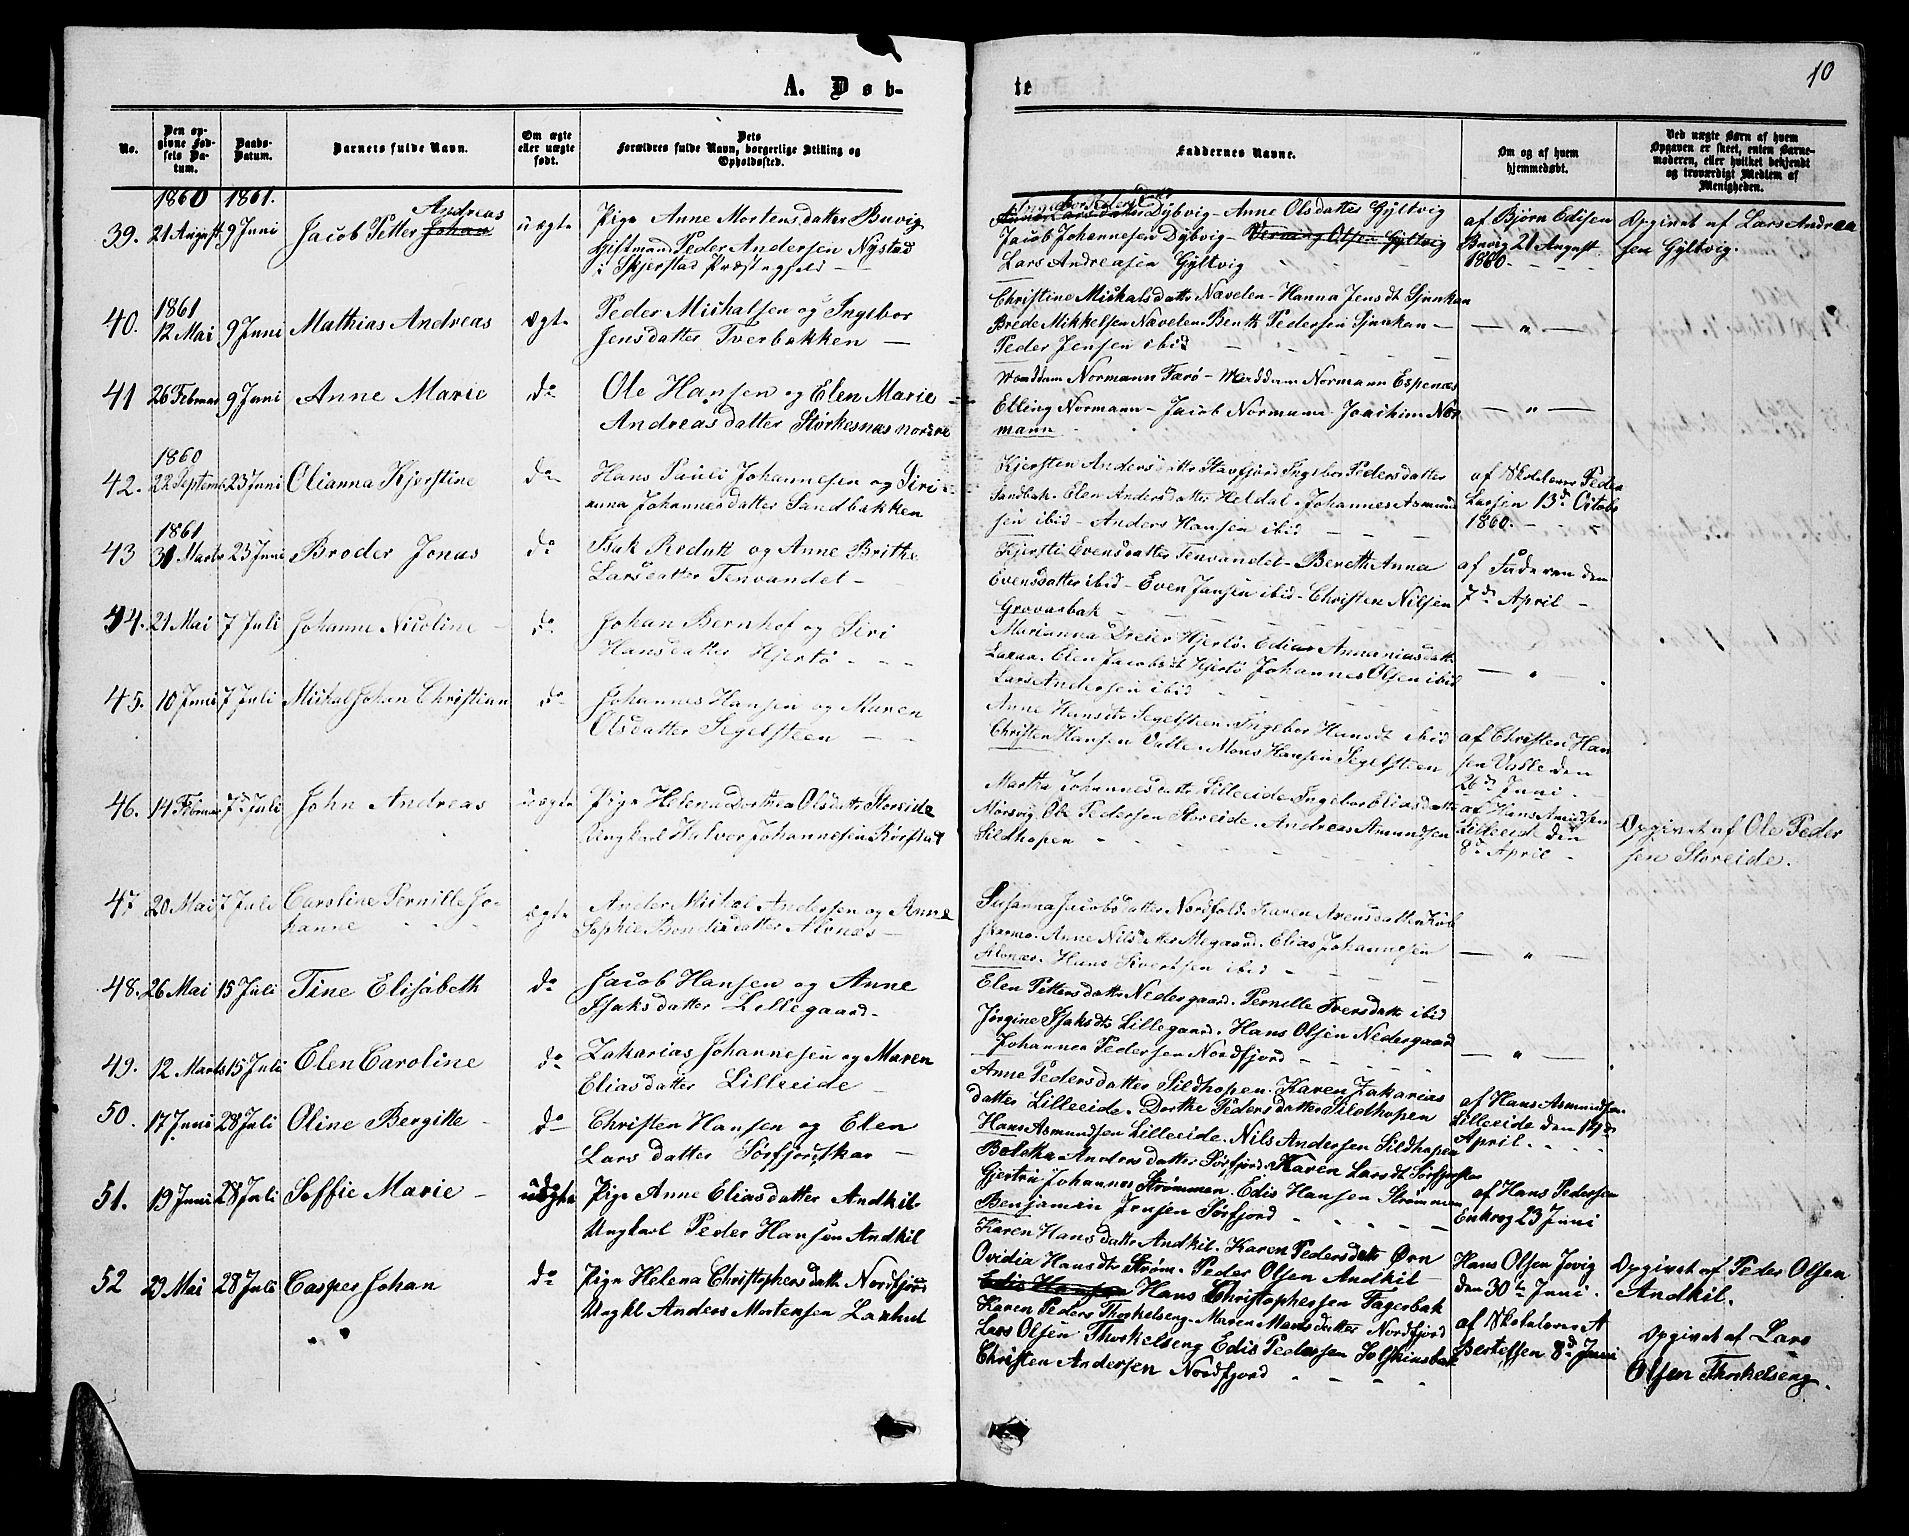 10
A. Døb-
te
No.
Den opgivne Fødsels Datum.
Daabs-Datum.
Barnets fulde Navn.
Om ægte eller uægte født.
Dets Forældres fulde Navn, borgerlige Stilling og Opholdssted.
Faddernes Navne.
Om og af hvem hjemmedøbt.
Ved uægte Børn af hvem Opgaven er skeet, enten Barnemoderen, eller hvilket bekjendt og troværdigt Medlem af Menigheden.
1860 1861.
39. 21 August 9 Juni Jacob Petter Johan Andreas uægte Pige Anne Mortensdatter Buvig
Giftmand Peder Andersen Nystad
i Skjerstad Præstegjeld
Dybvig - Anne Olsdatter Gyltvig
Jacob Johannesen Dybvig - Olsen Gyltvig
Lars Andreasen Gyltvig
af Bjørn Edisen
Buvig 21 August
1860.
Opgivet af Lars Andrea
sen Gyltvig.
1861
40. 12 Mai 9 Juni Mathias Andreas ægte Peder Michalsen og Ingebor
Jensdatter Tverbakken
Christine Michalsdatter Nævelen - Hanna Jensdt Sjunkan
Brede Mikkelsen Nævelen Benth Pedersen Sjunkan
Peder Jensen ibid
— " —
41 26 Februar 9 Juni Anne Marie do Ole Hansen og Elen Marie
Andreasdatter Storkesnæs nordre
Maddam Normann Farø - Maddam Normann Espenæs
Elling Normann - Jacob Normann. Joachim Nor
mann
— " —
1860
42. 22 Septemb 23 Juni Olianna Kjerstine do Hans Pauli Johannesen og Siri
anna Johannesdatter Sandbakken
Kjersten Andersdatter Stavfjord Ingebor Pedersdatter
Sandbak. Elen Andersdatter Heldal. Johannes Asmund
sen ibid - Anders Hansen ibid
af Skolelærer Peder
Larsen 13de Octobr
1860.
1861
43 31 Marts 23 Juni Broder Jonas do Isak Reduk og Anne Brithe
Larsdatter Tenvandet
Kjersti Evensdatter Tenvandet - Bereth Anna
Evensdatter ibid - Even Jansen ibid - Christen Nilsen
Grovasbak
af Faderen den
7de April
44. 21 Mai 7 Juli Johanne Nicoline do Johan Bernhof og Siri
Hansdatter Hjertø
Marianna Dreier Hjertø. Edias Annaniasdatter
Laxaa. Elen Jacobsdt Hjertø Johannes Olsen ibid
Lars Andersen ibid
— " —
45. 10 Juni 7 Juli Michal Johan Christian do Johannes Hansen og Maren
Olsdatter Segelsteen
Anne Hansdtr Segelsteen. Ingebor Hansdt ibid
Christen Hansen Valle. Mons Hansen Segelsteen
af Christen Han
sen Valle den
26de Juni.
46. 14 Februar 7de Juli John Andreas uægte Pige Helena Dorthea Olsdatter Storeide
Ungkarl Halvor Johannesen Børstad
Martha Johannesdatter Lilleeide Ingebor Eliasdatter
Mørsvig. Ole Pedersen Storeide. Andreas Asmundsen
Sildhopen
af Hans Asmundsen
Lilleeide den
8de April
Opgivet af Ole Peder
sen Storeide.
47 20 Mai 7 Juli Caroline Pernille Jo-
hanne
ægte Ander Mikal Andersen og Anne
Sophie Bendixdatter Alvnæs
Susanna Jacobsdatter Nordfold. Karen Arensdatter
Anne Nilsdatter Megaard. Elias Johannesen
Alvnæs. Hans Sivertsen ibid
— " —
48. 26 Mai 15 Juli Tine Elisabeth do Jacob Hansen og Anne
Isaksdatter Lillegaard
Elen Pettersdatter Nedergaard. Pernille Iversdatt ibid
Jørgine Isaksdtr Lillegaard. Hans Olsen Nedergaard
Johannes Pedersen Nordfjord
— " —
49. 12 Marts 15 Juli Elen Caroline do Zakarias Johannesen og Maren
Eliasdatter Lilleeide
Anne Pedersdatter Sildhopen. Karen Zakarias
datter Lilleeide. Dorthe Pedersdatter Sildhopen
Hans Asmundsen Lilleeide. Nils Andersen Sildhopen
af Hans Asmundsen
Lilleeide den 19de
April.
50. 17 Juni 28 Juli Oline Bergitte do Christen Hansen og Elen
Larsdatter Sørfjordskar
Boletha Andersdatter Sørfjord. Karen Larsdt Sørfjordskar
Gjertru Johannes Strømmen. Edis Hansen Strømmen
Benjamin Jensen Sørfjord
af Hans Pedersen
Enkrog 23 Juni
51. 19 Juni 28 Juli Soffie Marie uægte Pige Anne Eliasdatter Andkil
Ungkarl Peder Hansen Andkil
Karen Hansdatter Andkil. Karen Pedersdatt Ørn
Ovidia Hansdt Strøm. Peder Olsen Andkil
Edis Hansen
Hans Olsen Jøvig
den 30te Juni.
Opgivet af Peder Olsen
Andkil.
52 29 Mai 28 Juli Casper Johan do Pige Helena Christophersdatt Nordfjord
Ungkl Anders Mortensen Laxhul
Hans Christophersen Fagerbak
Karen Peders Thorkelseng. Maren Mansdatter Nordfjord
Lars Olsen Thorkelseng Edis Pedersen Solskinsbak
Christen Andersen Nordfjord
af Skolelærer A
Bertelsen 8de Juni
Opgivet af Lars
Olsen Thorkelseng.